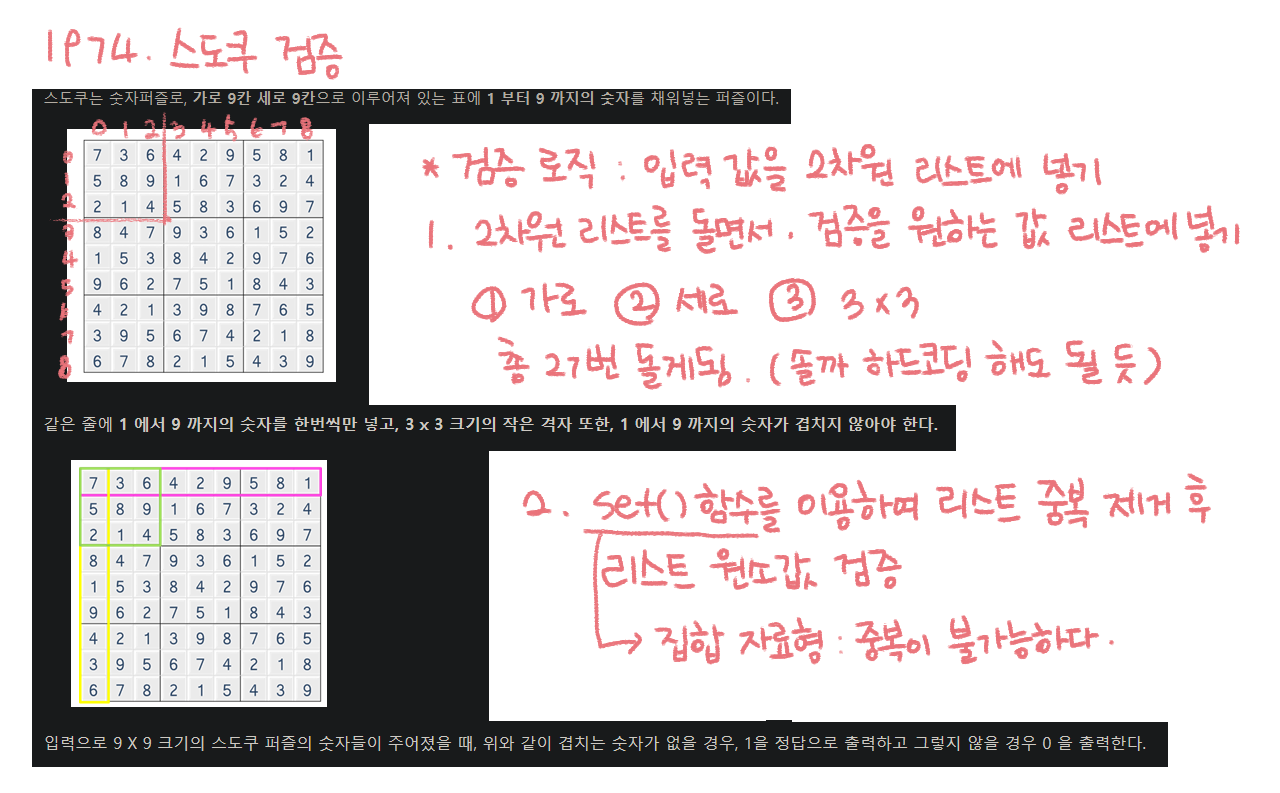 1974. 스도쿠 검증
스도쿠는 숫자퍼즐로, 가로 9칸 세로 9칸으로 이루어져 있는 표에 1 부터 9 까지의 숫자를 채워넣는 퍼즐이다.
0 1 2 3 4 5 6 7 8
0 7 3 6 4 2 9 5 8 1
1 5 8 9 1 6 7 3 2 4
2 2 1 4 5 8 3 6 9 7
3 8 4 7 9 3 6 1 5 2
4 1 5 3 8 4 2 9 7 6
5 9 6 2 7 5 1 8 4 3
6 4 2 1 3 9 8 7 6 5
7 3 9 5 6 7 4 2 1 8
8 6 7 8 2 1 5 4 3 9
* 검증 로직 : 입력 값을 2차원 리스트에 넣기
1. 2차원 리스트를 돌면서. 검증을 원하는 값 리스트에 넣기
① 가로 ② 세로 ③ 3 x 3
총 27번 돌게됨. (솔까 하드코딩 해도 될 듯)
같은 줄에 1 에서 9 까지의 숫자를 한번씩만 넣고, 3 x 3 크기의 작은 격자 또한, 1 에서 9 까지의 숫자가 겹치지 않아야 한다.
7 3 6 4 2 9 5 8 1
5 8 9 1 6 7 3 2 4
2 1 4 5 8 3 6 9 7
8 4 7 9 3 6 1 5 2
1 5 3 8 4 2 9 7 6
9 6 2 7 5 1 8 4 3
4 2 1 3 9 8 7 6 5
3 9 5 6 7 4 2 1 8
6 7 8 2 1 5 4 3 9
2. set() 함수를 이용하여 리스트 중복 제거 후
리스트 원소값 검증
→ 집합 자료형 : 중복이 불가능하다.
입력으로 9 X 9 크기의 스도쿠 퍼즐의 숫자들이 주어졌을 때, 위와 같이 겹치는 숫자가 없을 경우, 1을 정답으로 출력하고 그렇지 않을 경우 0 을 출력한다.